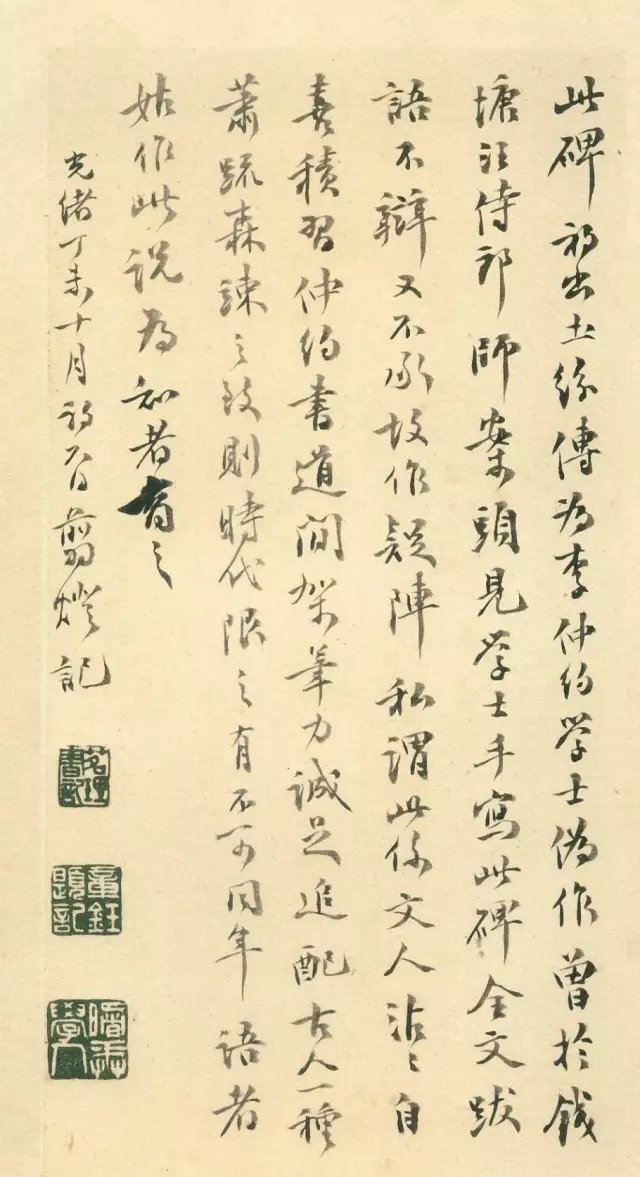 此碑初出土紛傳為李仲約學士偽作曾於錢
塘汪侍郎師案頭見学士手寫此碑全文跋
語不辯又不承故作疑陣私謂此係文人沾沾自
喜積習仲約書道間架筆力誠足追配古人一種
蕭疏森竦之致則時代限之有不可同年語者
姑作此説為知者省之
光緒丁未十月初六日翦燈記
茗理書記
章鈺題記
曙戒學人